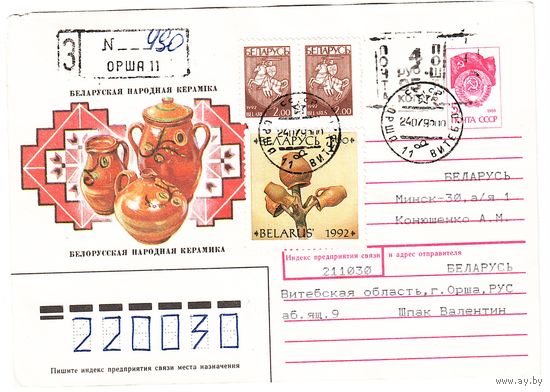 З
N 490
ОРША 11
БЕЛАРУСКАЯ НАРОДНАЯ КЕРАМІКА
БЕЛОРУССКАЯ НАРОДНАЯ КЕРАМИКА
БЕЛАРУСЬ
1992 BELARUS 2.00
БЕЛАРУСЬ
1992 BELARUS 2.00
БЕЛАРУСЬ
BELARUS' 1992
ПОЧТА СССР
ОРША 11 ВИТЕБ
ОРША 11 ВИТЕБ
БЕЛАРУСЬ
Минск-30,а/я 1
Конюшенко А.М.
Индекс предприятия связи и адрес отправителя
211030 БЕЛАРУСЬ
Витебская область,г.Орша,РУС
аб.ящ.9 Шпак Валентин
220030
Пишите индекс предприятия связи места назначения
www.ay.by